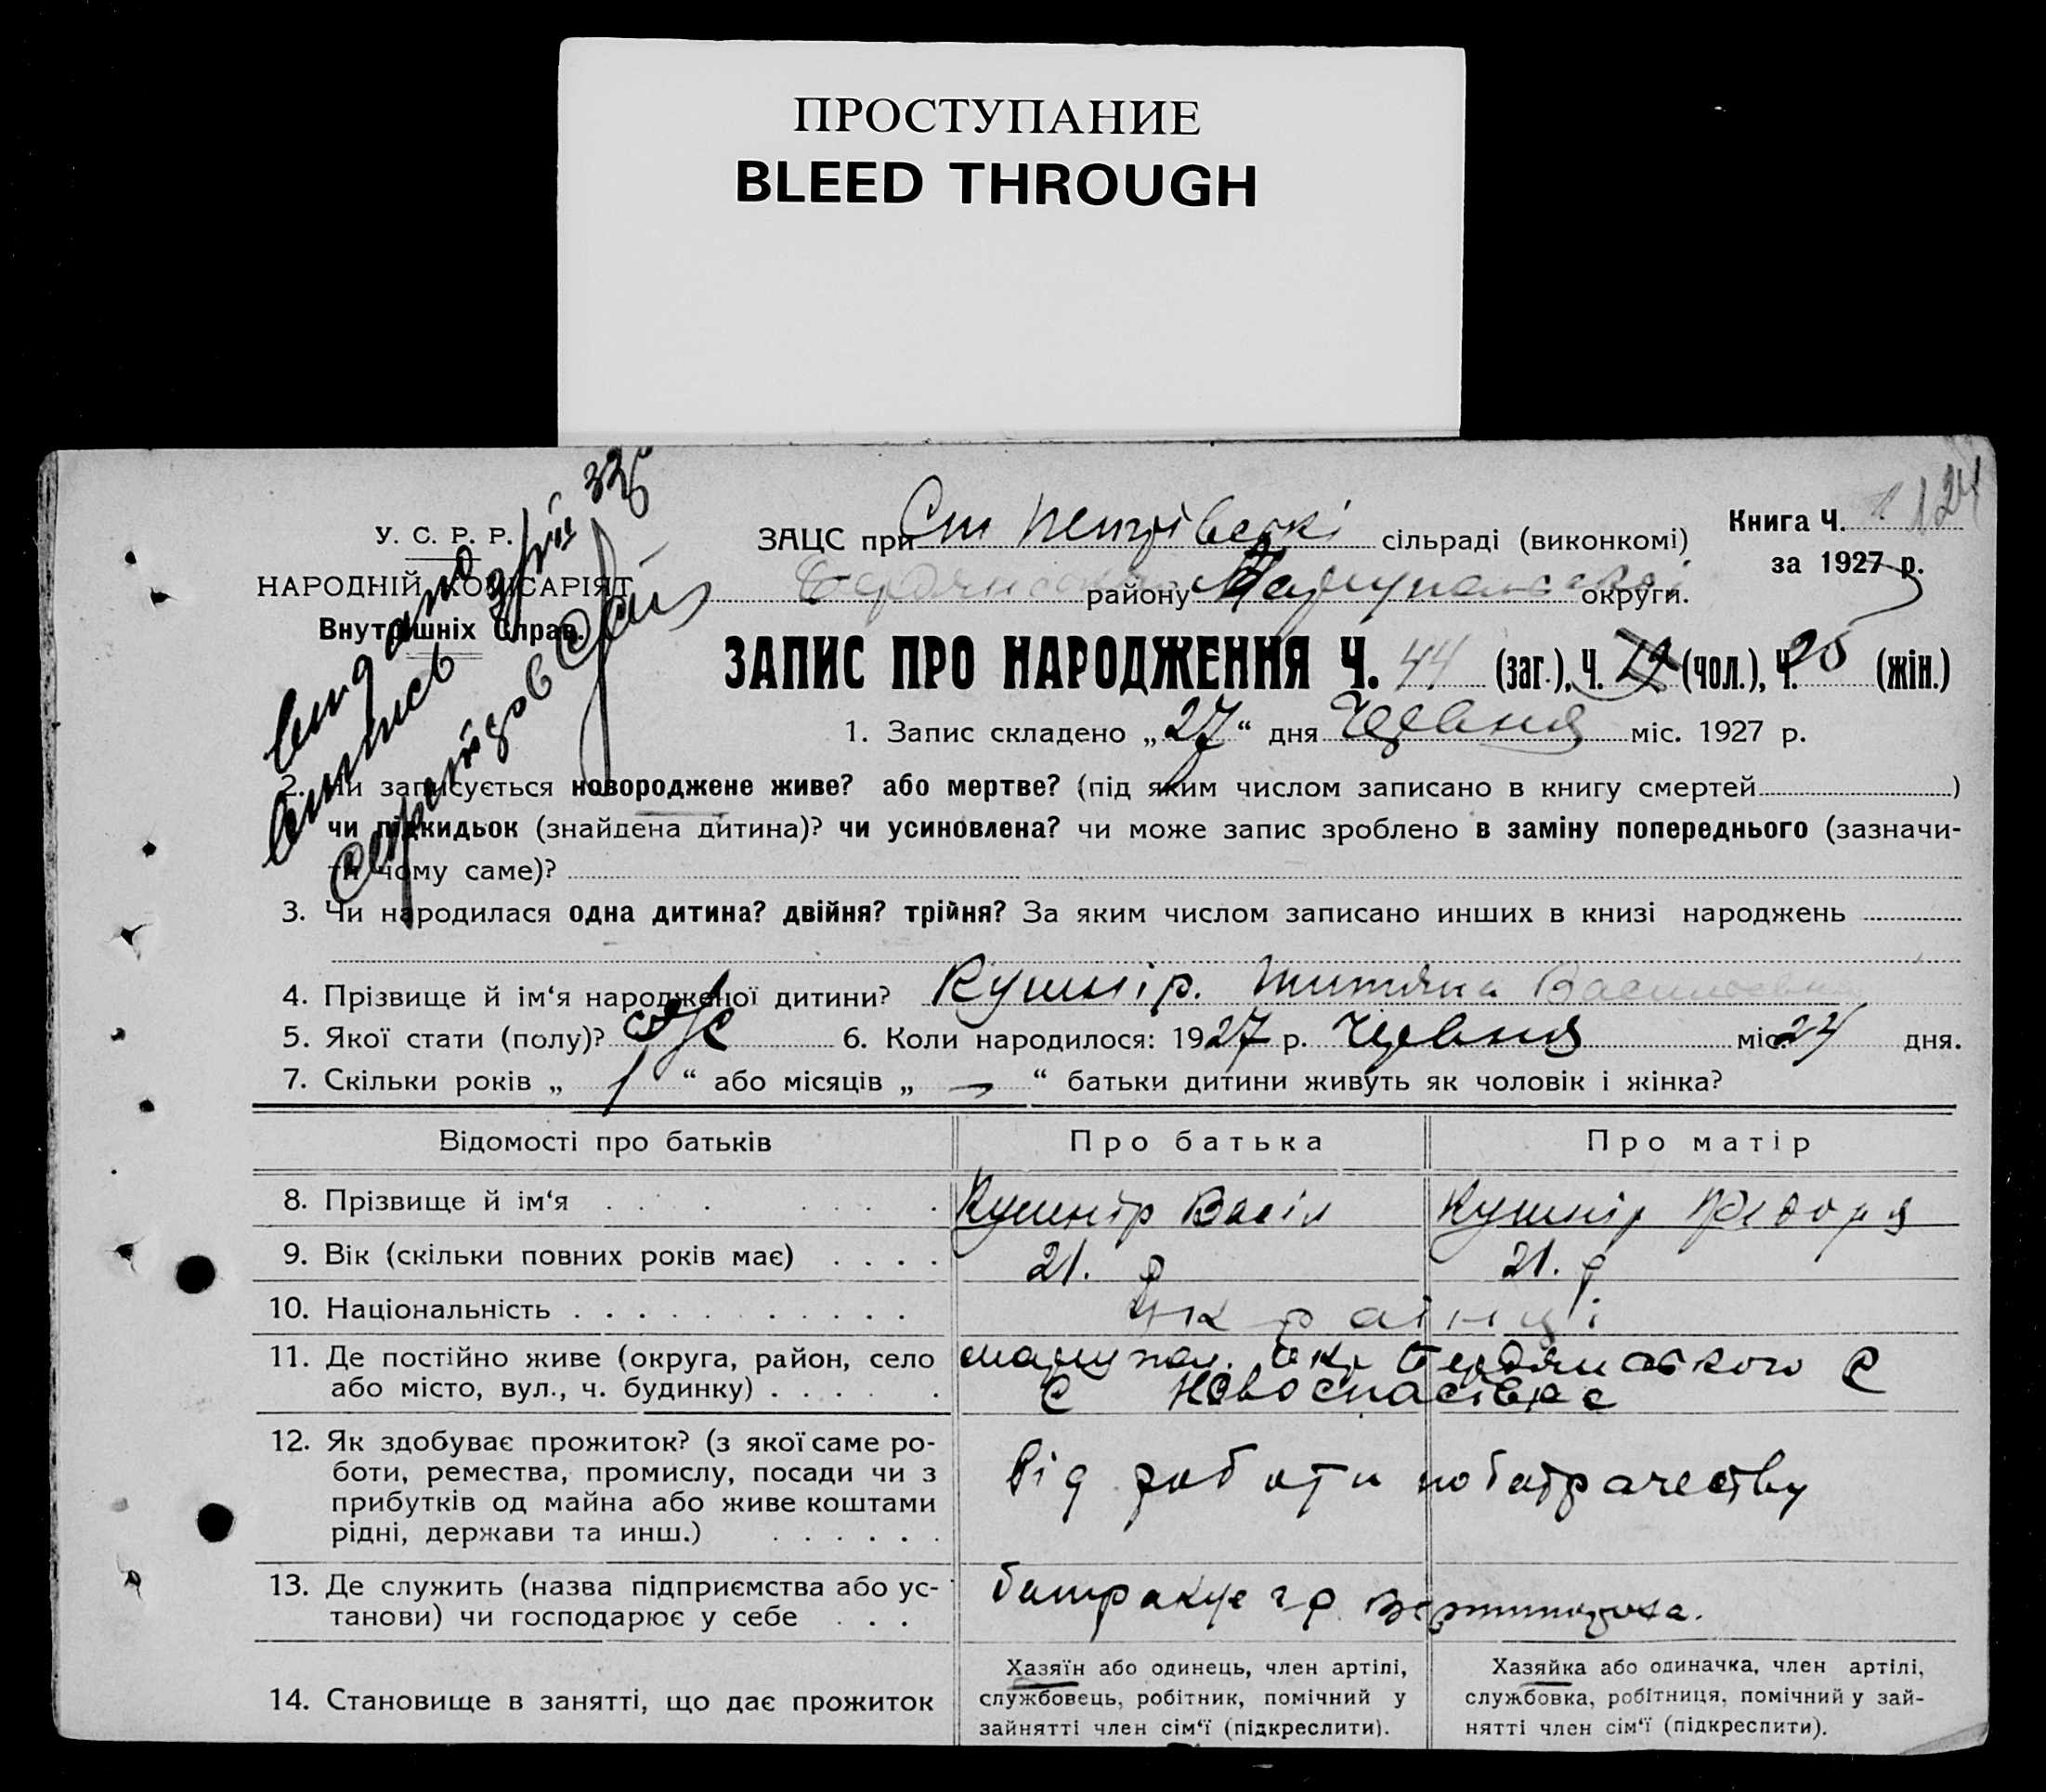 ПРОСТУПАНИЕ
BLEED THROUGH
124
У. С. Р. Р.
НАРОДНІЙ КОМІСАРІЯТ
Внутрішніх Справ.
ЗАЦС при сільраді (виконкомі)
Книга Ч.
за 1927 р.
району округи.
ЗАПИС ПРО НАРОДЖЕННЯ Ч. 44 (заг.), Ч. 19 (чол.), Ч. 25 (жін.)
1. Запис складено „27“ дня Червня міс. 1927 р.
2. Чи записується новороджене живе? або мертве? (під яким числом записано в книгу смертей )
чи підкидьок (знайдена дитина)? чи усиновлена? чи може запис зроблено в заміну попереднього (зазначи-
ти чому саме)?
3. Чи народилася одна дитина? двійня? трійня? За яким числом записано инших в книзі народжень
4. Прізвище й ім‘я народженої дитини? Кушнір. Титяна Васильевна
5. Якої стати (полу)? ж 6. Коли народилося: 1927 р. Червня міс. 24 дня.
7. Скільки років „ 1 “ або місяців „ — “ батьки дитини живуть як чоловік і жінка?
Відомості про батьків Про батька Про матір
8. Прізвище й ім‘я Кушнір Васіл Кушнір Федоря
9. Вік (скільки повних років має) 21. р 21. р
10. Національність Українці
11. Де постійно живе (округа, район, село Маріупол. окр Бердянського р
або місто, вул., ч. будинку) с Новоспасівка
12. Як здобуває прожиток? (з якої саме ро-
боти, ремества, промислу, посади чи з Від роботи по батрачеству
прибутків од майна або живе коштами
рідні, держави та инш.)
13. Де служить (назва підприємства або ус- батракує гр.
танови) чи господарює у себе
14. Становище в занятті, що дає прожиток
Хазяїн або одинець, член артілі,
службовець, робітник, помічний у
зайнятті член сім‘ї (підкреслити).
Хазяйка або одиначка, член артілі,
службовка, робітниця, помічний у зай-
нятті член сім‘ї (підкреслити).